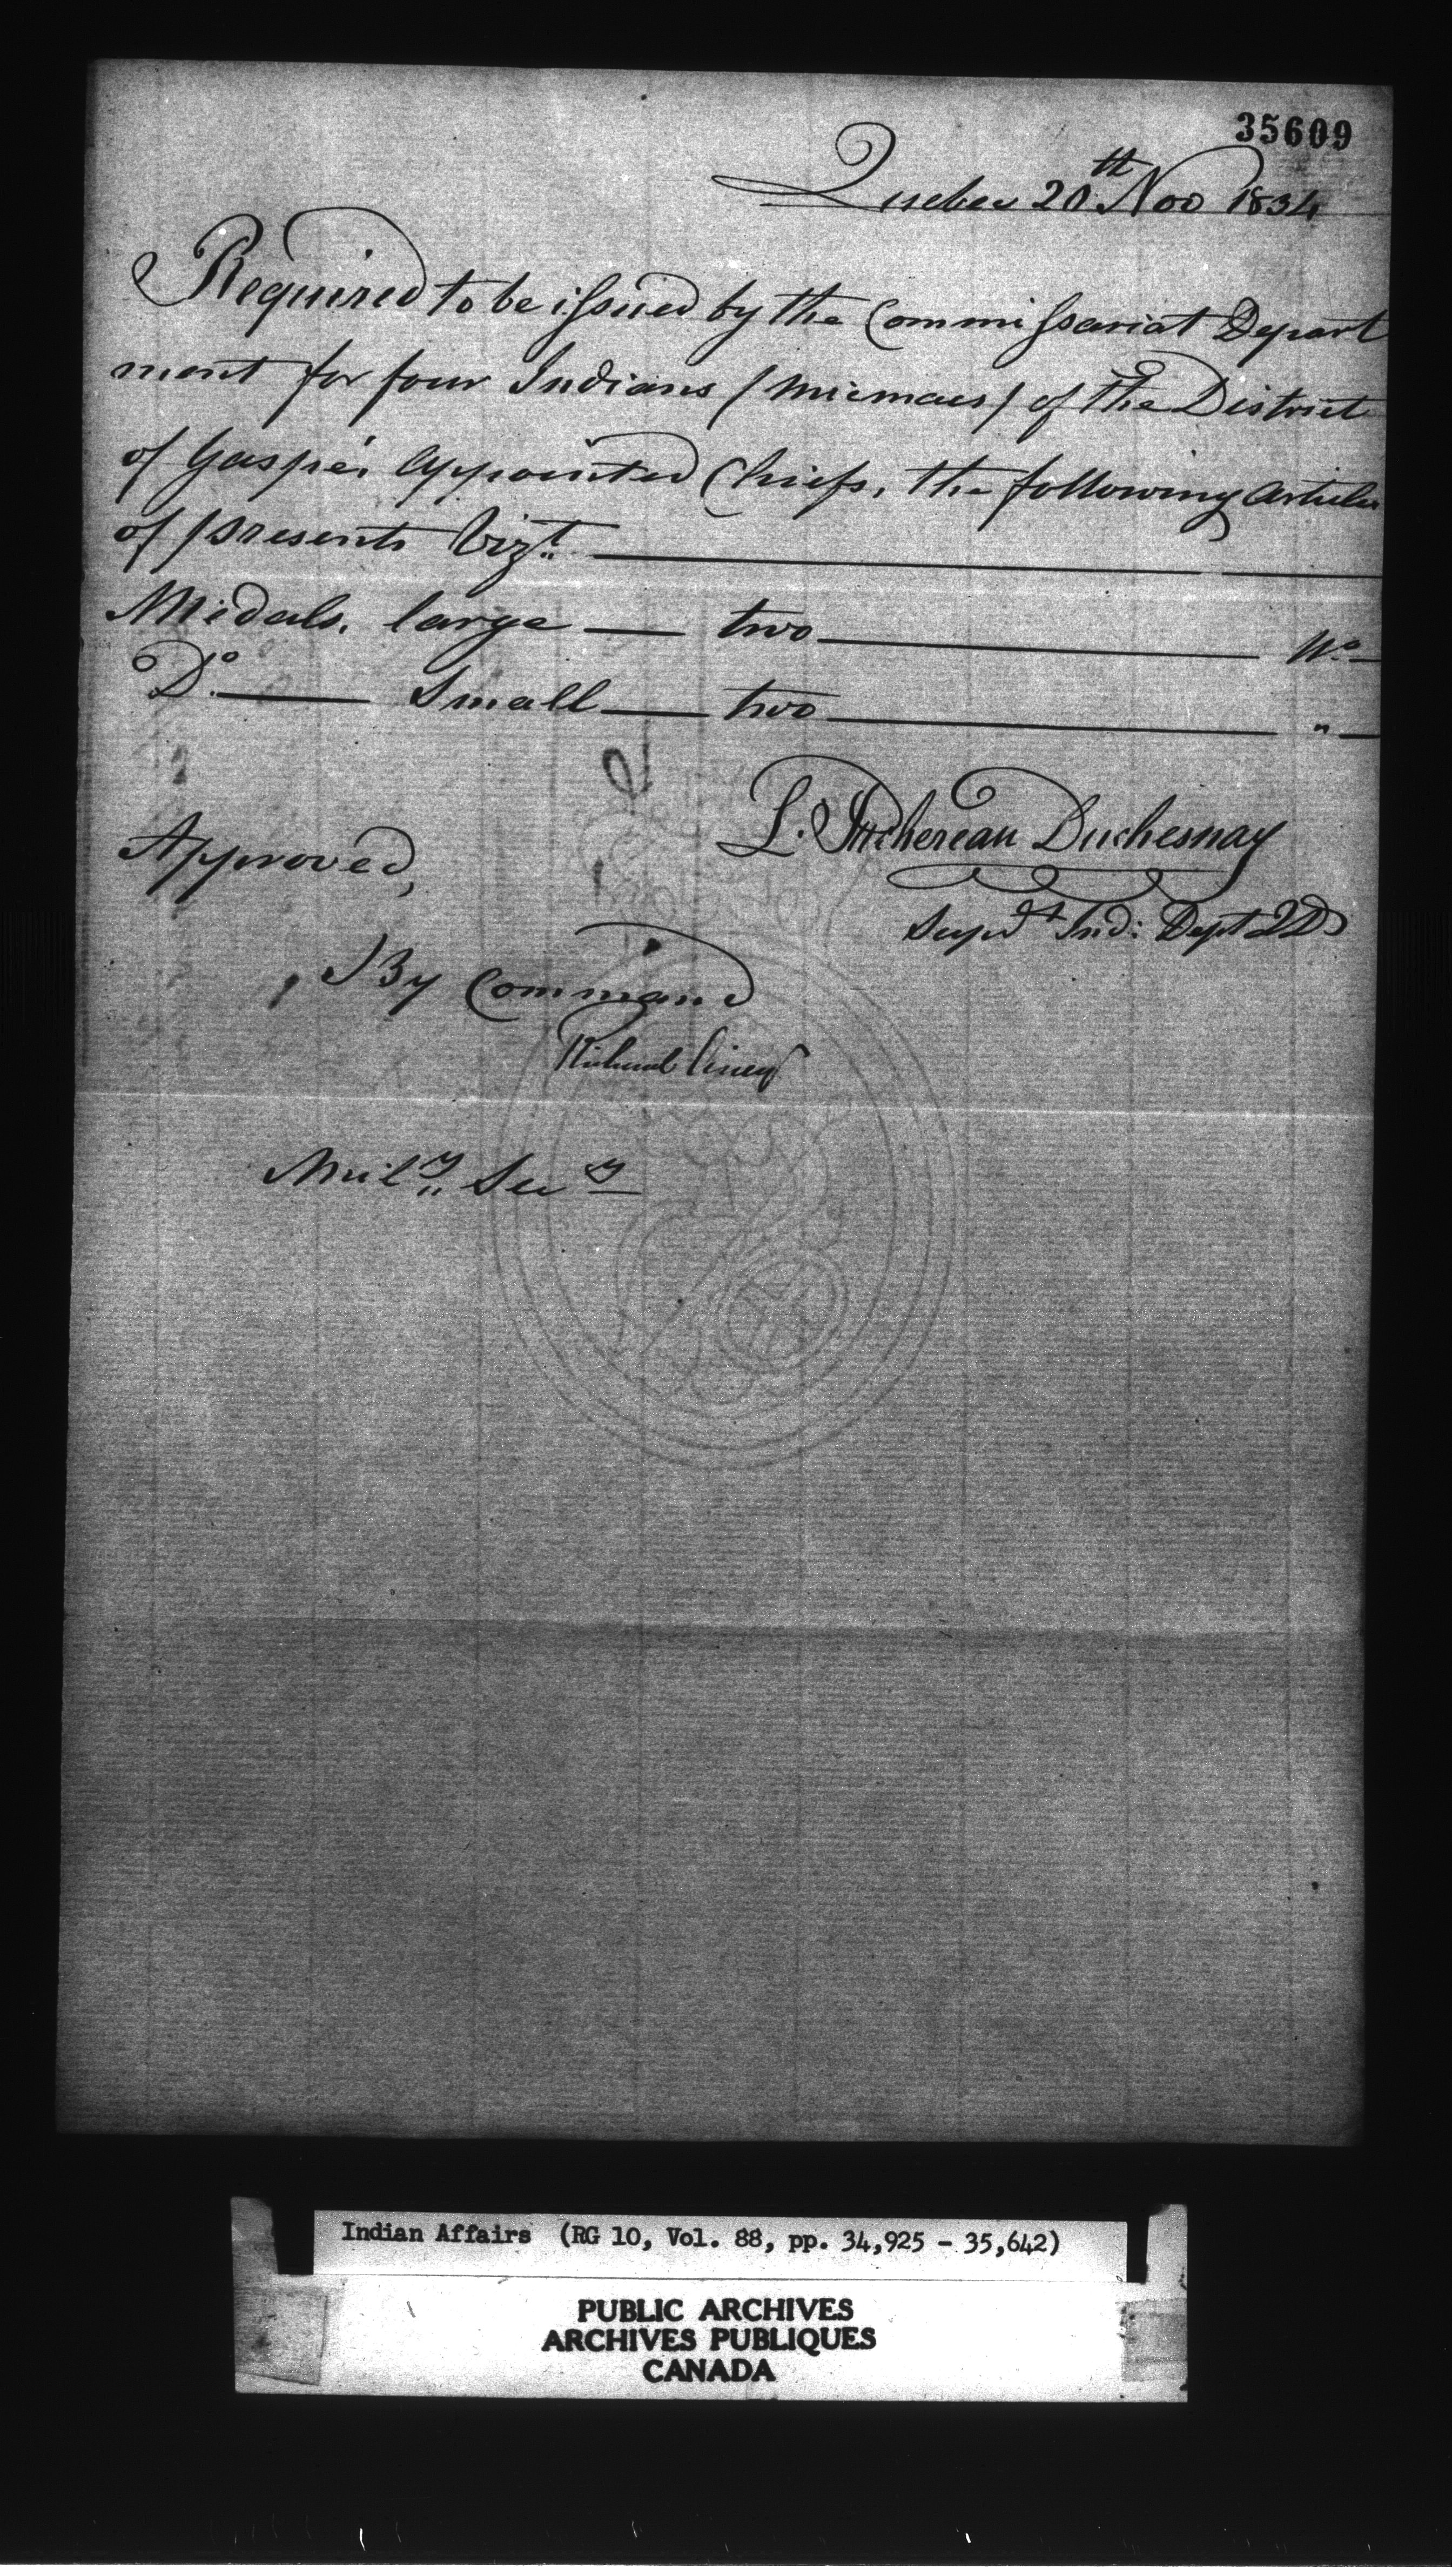 35609
Quebec 20th Nov 1834
Required to be issued by the Commissariat Depart
ment for four Indians (Micmacs) of the District
of Gaspé, appointed Chiefs, the following articles
of presents Vizt.
Medals, large — two — No.
Do. — Small — two — "
L. Juchereau Duchesnay
Supdt Ind: Dept
Approved,
By Command
Richard
Mily. Secy
Indian Affairs (RG 10, Vol. 88, pp. 34,925 - 35,642)
PUBLIC ARCHIVES
ARCHIVES PUBLIQUES
CANADA